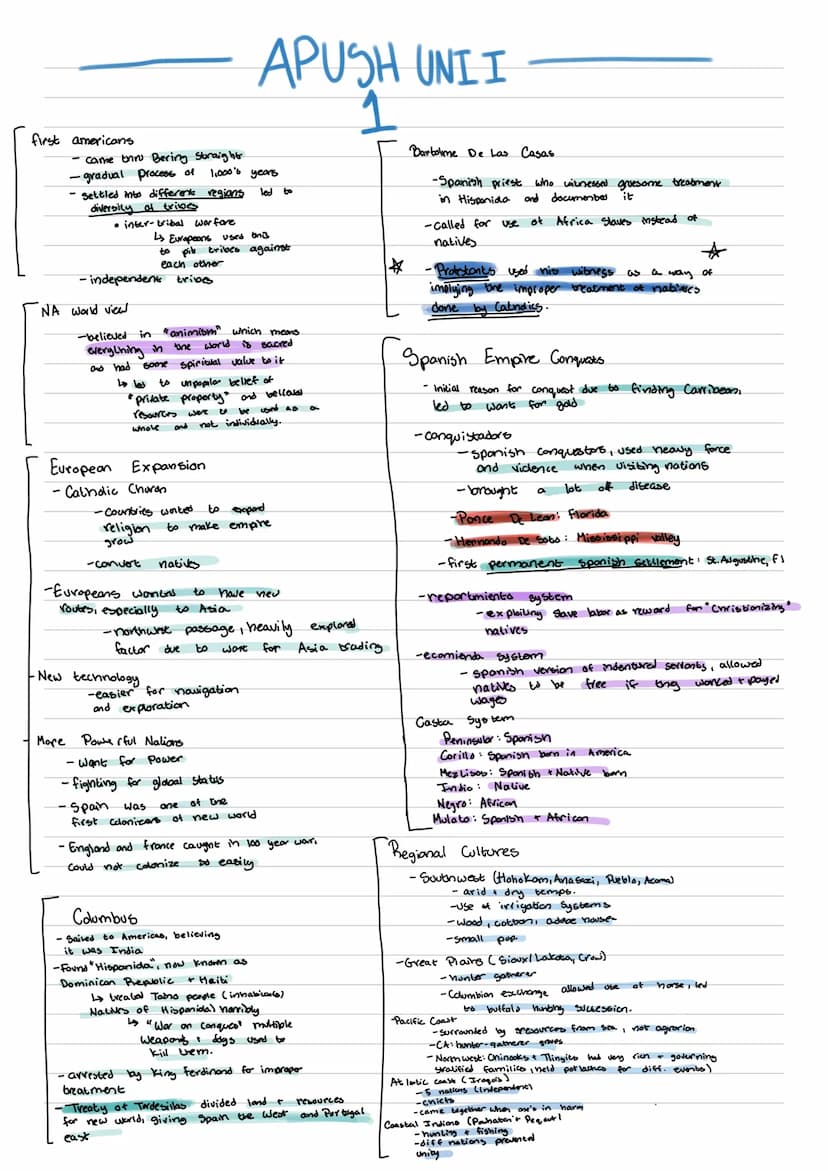 APUSH UNIT
1
first americans
- came thru Bering Straight
- gradual process of 1,000's years
- settled into different regions led to
diversity of tribes
• inter-tribal warfare
↳ Europeans used this
to pit tribes against
each other
- independent tribes
NA World view
- believed in "animism" which means
everything in the world is sacred
and had some spiritual value to it
↳ led to unpopular belief of
"private property" and believed
resources were to be used as a
whole and not individually.
European Expansion
- Catholic Church
- countries wanted to expand
religion to make empire
grow
- convert natives
- Europeans wanted to have new
routes, especially to Asia
- northwest passage, heavily explored
factor due to want for Asia trading
- New technology
- easier for navigation
and exploration
More Powerful Nations
- Want for Power
- fighting for global status
- Spain was one of the
first colonizers of new world
- England and france caught in 100 year war,
could not colonize so easily
Columbus
- Sailed to Americas, believing
it was India
- Found "Hispaniola", now known as
Dominican Republic + Haiti
↳ treated Taino people (inhabitants)
Natives of Hispaniola) horribly
↳ "War on conquest" multiple
weapons + dogs used to
kill them.
- arrested by King Ferdinand for improper
treatment
- Treaty of Tordesillas divided land + resources
for new world, giving Spain the West and Portugal
east
Bartolme De Las Casas
- Spanish priest who witnessed gruesome treatment
in Hispaniola and documented it
- called for use of Africa Slaves instead of
natives
- Protestants used his witness as a way of
implying the improper treatment of natives
done by Catholics.
Spanish Empire Conquests
- Initial reason for conquest due to finding Carribean,
led to want for gold
- conquistadors
- spanish conquestors, used heavy force
and violence when visiting nations
- brought a lot of disease
- Ponce De Leon: Florida
- Hernando De Soto: Mississippi Valley
- first permanent spanish settlement: St. Augustine, Fl
- repartmiento system
- exploiting slave labor as reward for "Christianizing"
natives
- ecomienda system
- spanish version of indentured servants, allowed
natives to be free if they worked + payed
wages
Casta System
Peninsular: Spanish
Corillo: Spanish born in America
Meztisos: Spanish + Native born
Indio: Native
Negro: African
Mulato: Spanish + African
Regional Cultures
- Southwest (Hohokam, Anasazi, Pueblo, Acoma)
- arid + dry temps.
- Use of irrigation systems
- Wood, cotton, adobe house
- small pop.
- Great Plains (Sioux/Lakota, Crow)
- hunter gatherer
- Columbian exchange allowed use of horse, led
to buffalo hunting succession.
- Pacific Coast
- surrounded by resources from sea, not agrarian
- CA: hunter-gatherer groups
- Northwest: Chinooks + Tlingits had very rich + governing
stratified families, held potlatches for diff. events)
Atlatic Coast (Iroqois)
- 5 nations (independent)
- chiefs
- came together when one's in harm
Coastal Indians (Powhatan + Pequot)
- hunting + fishing
- diff nations prevented
unity